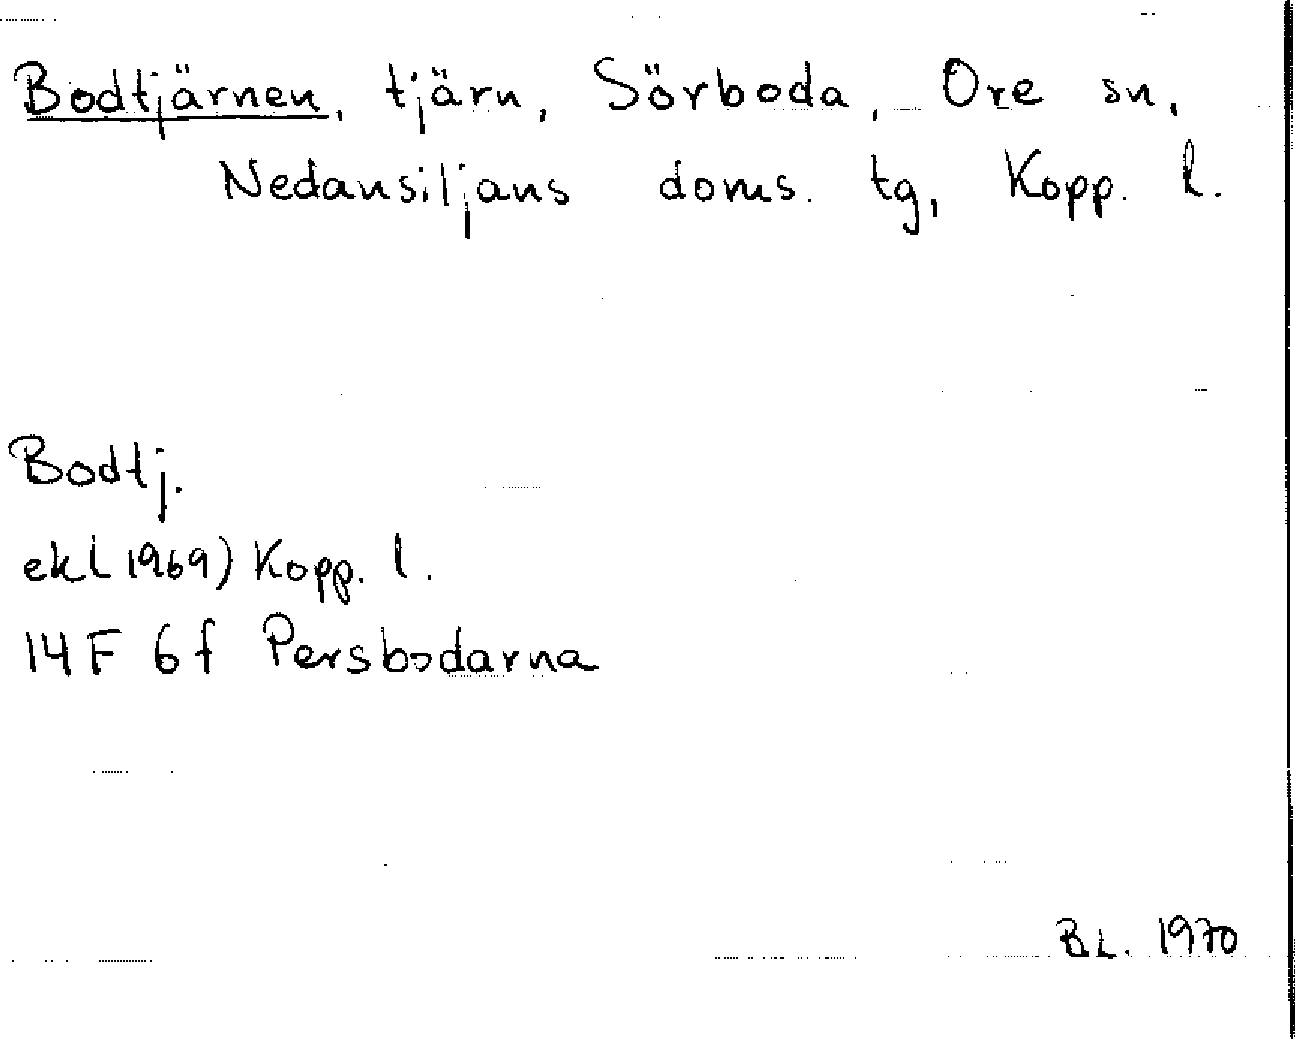 Bodtjärnen, tjärn, Sörboda, Ore sn,
Nedansiljans doms. tg, Kopp. l.
Bodtj.
ekl 1969) Kopp. l.
14F 6f Persbodarna
BL. 1970